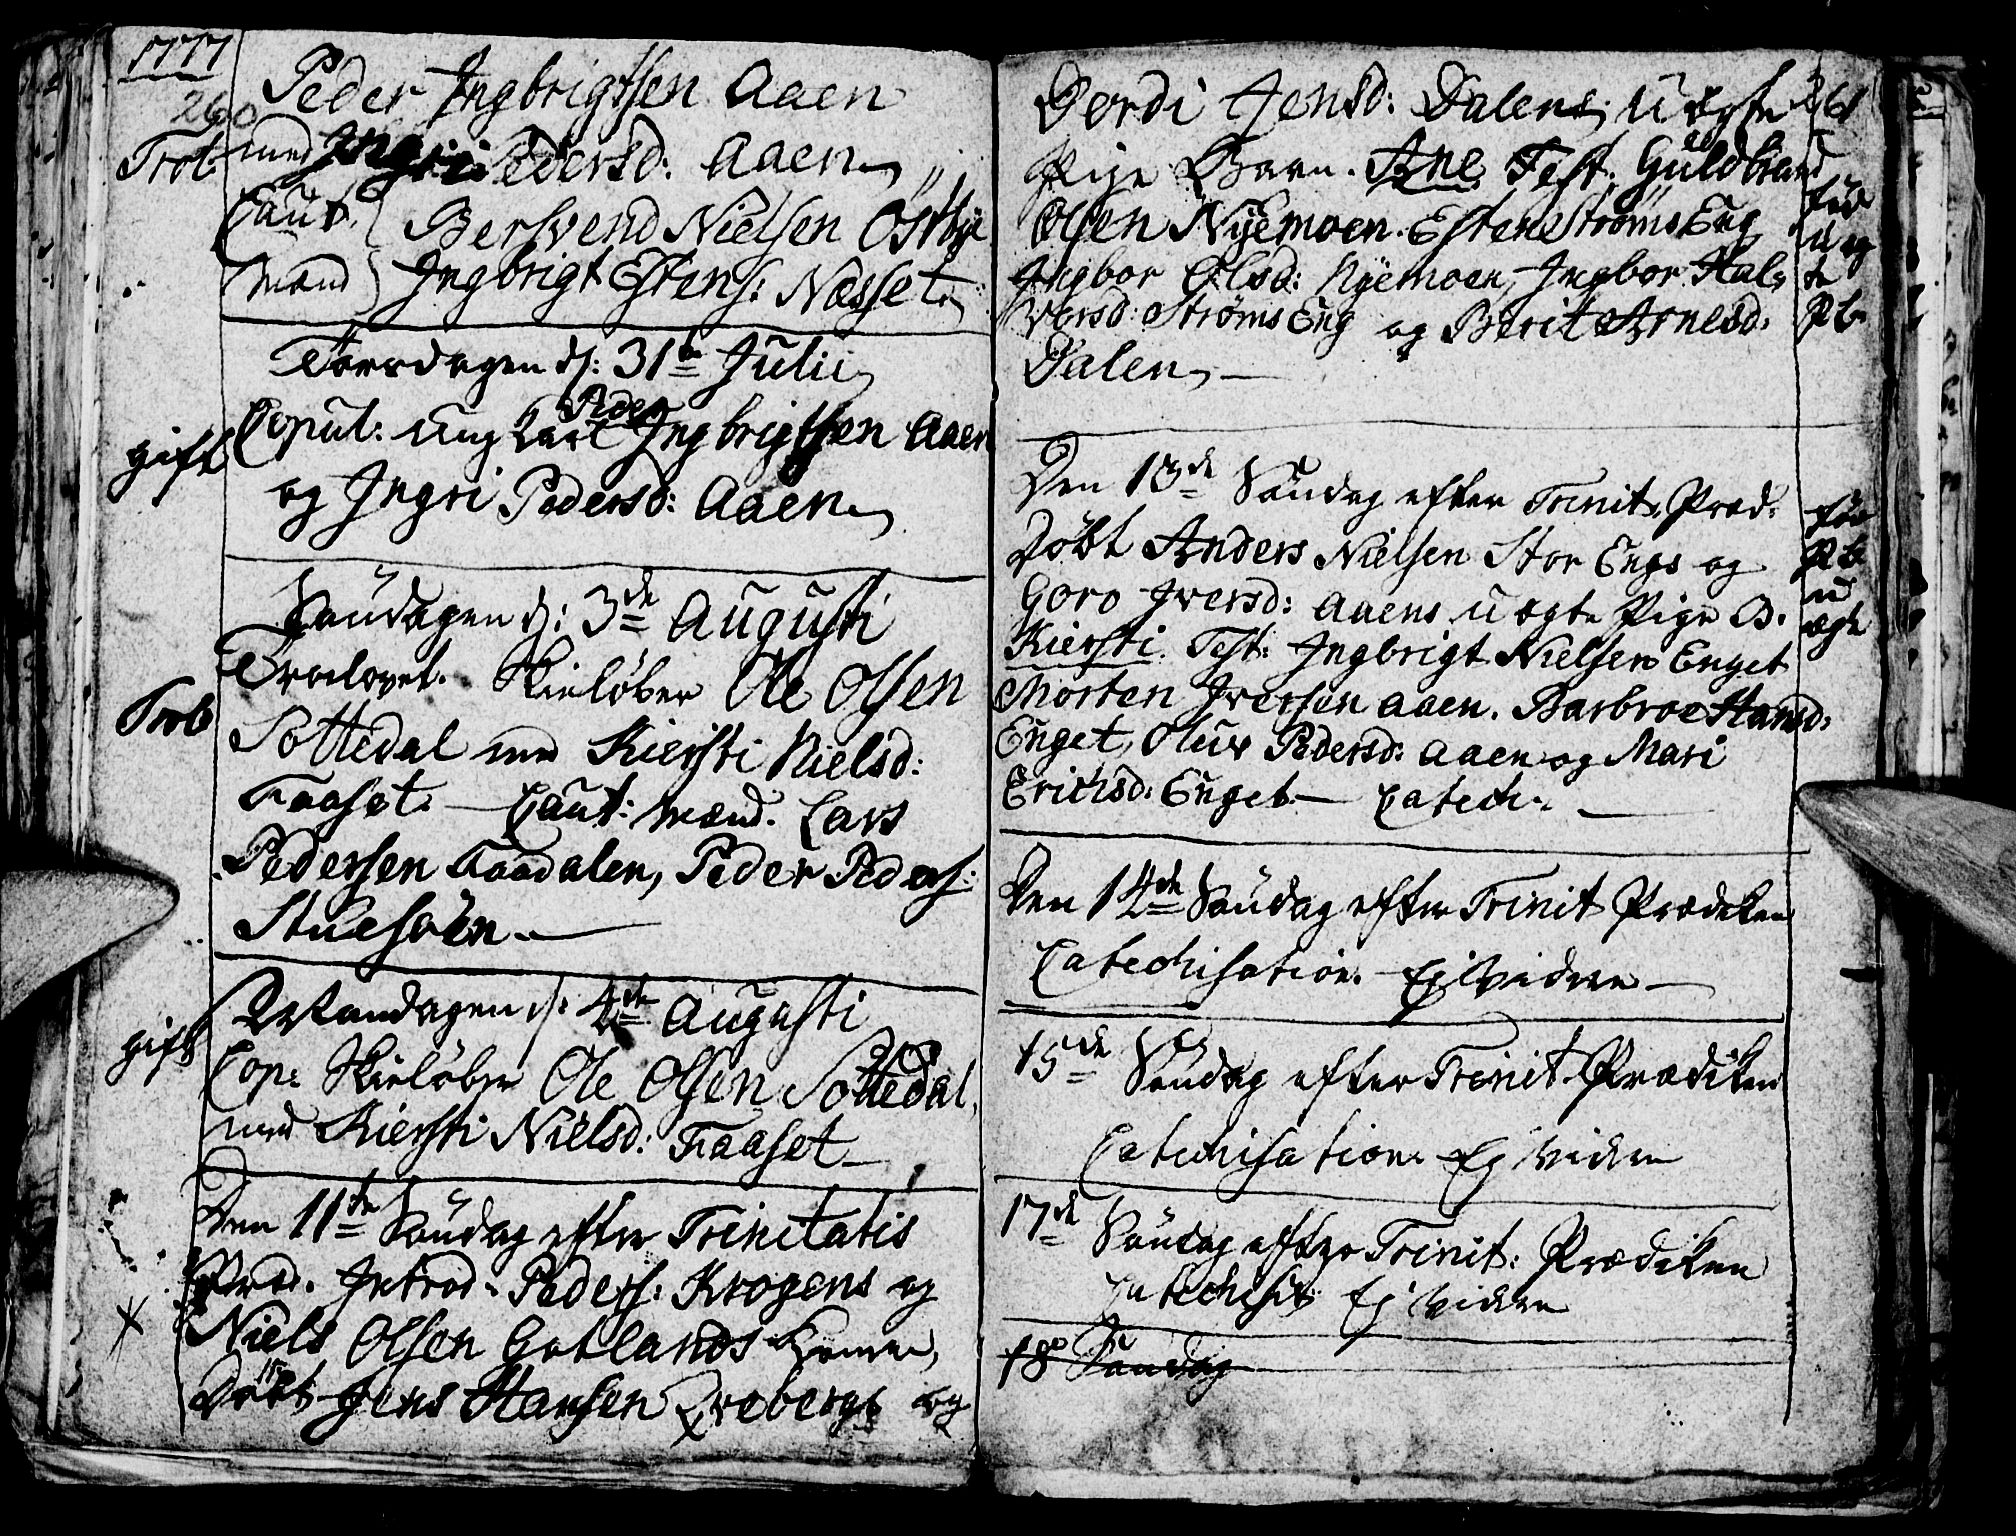 1777
260
Peder Ingbrigtsen Aaen
Trol. med Ingri Pedersd: Aaen
Caut. Bersvend Nielsen Østbye
Mænd Ingbrigt Estens: Næsset
Torsdagen d: 31te Julii
Peder
gift Copul: Ung Karl Ingbrigtsen Aaen
og Ingri Pedersd: Aaen
Søndagen d: 3de Augusti
Trolovet. Skieløber Ole Olsen
Trol. Sottedal med Kiersti Nielsd:
Faaset. Caut: Mænd. Lars
Pedersen Faadalen, Peder Peders:
Stuesøen
Mandagen d: 4de Augusti
gift Cop: Skieløber Ole Olsen Sottedal
med Kiersti Nielsd: Faaset
Den 11te Søndag efter Trinitatis
Præd. Introd. Peders: Krogens og
Niels Olsen Gotlands Koner,
Døbt Jens Hansen og
261
Dordi Jensd: Dalens, Uægte
Pige Barn. Ane Test. Guldbrand
Olsen Nyemoen. Esten Strøms Eng
Ingbor Olsd: Nyemoen, Ingbor Hal-
vorsd: Strøms Eng og Berit Arnesd:
Dalen
fød
uæg
te
P.b.
Den 13de Søndag efter Trinit. Præd.
Døbt Anders Nielsen Stor Engs og
Goro Iversd: Aaens uægte Pige B.
Kiersti. Test: Ingbrigt Nielsen Enget
Morten Iversen Aaen. Barbroe Hansd:
Enget, Oluv Pedersd: Aaen og Mari
Erichsd: Enget. Catech.
fød
P.b.
u
ægte
Den 14de Søndag efter Trinit Prædiken
Catechisation. Ej Videre
15de Søndag efter Trinit. Prædiken
Catechisation Ej Videre
17de Søndag efter Trinit: Prædiken
Catechisat: Ej Videre
18 Søndag